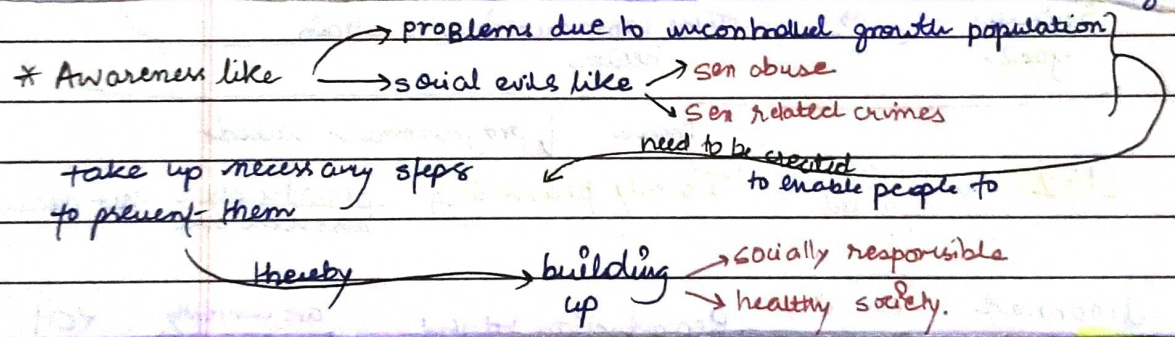 problems due to uncontrolled growth population
* Awareness like
social evils like
sex abuse
sex related crimes
need to be created
to enable people to
take up necessary steps
to prevent them
thereby
building
up
socially responsible
healthy society.